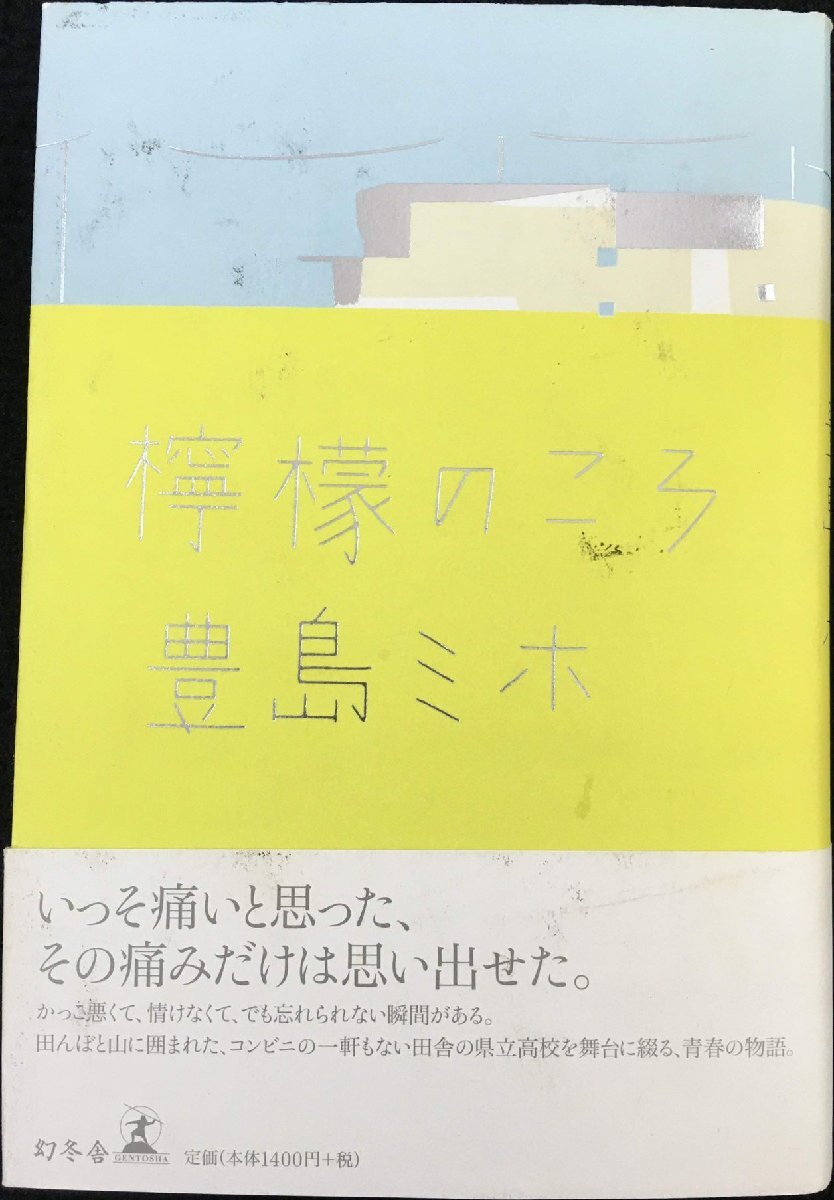 檸檬のころ
豊島ミホ
いっそ痛いと思った、
その痛みだけは思い出せた。
かっこ悪くて、情けなくて、でも忘れられない瞬間がある。
田んぼと山に囲まれた、コンビニの一軒もない田舎の県立高校を舞台に綴る、青春の物語。
幻冬舎 GENTOSHA 定価(本体1400円+税)